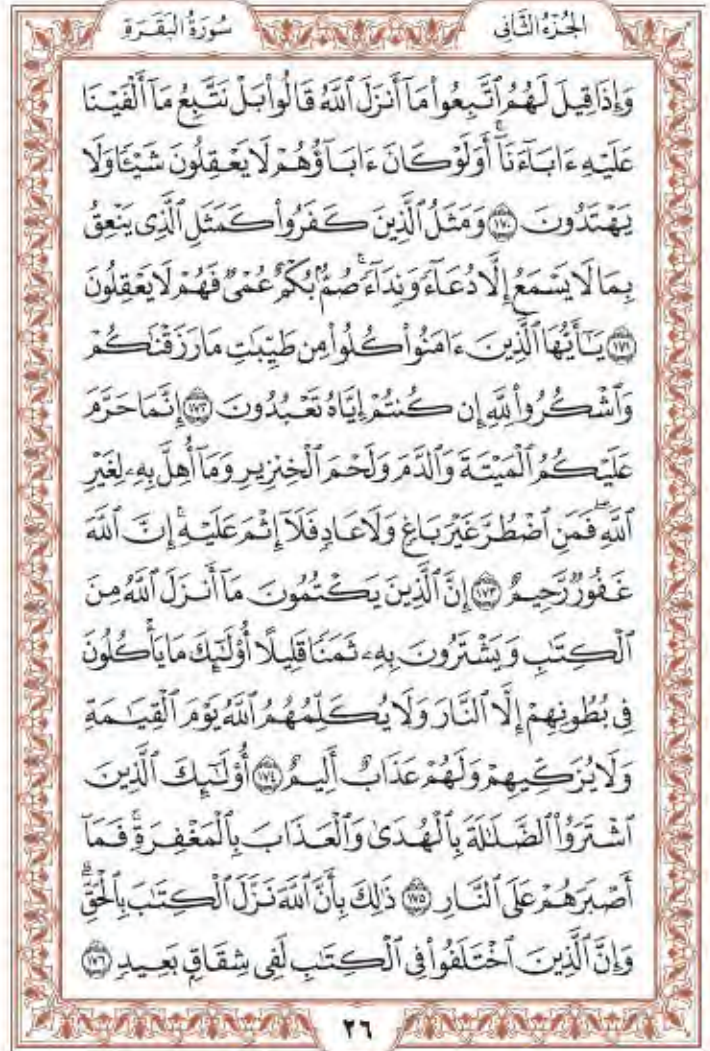 الجُزْءُ الثَّانِى
سُورَةُ البَقَـرَةِ
وَإِذَا قِيلَ لَهُمُ ٱتَّبِعُوا۟ مَآ أَنزَلَ ٱللَّهُ قَالُوا۟ بَلْ نَتَّبِعُ مَآ أَلْفَيْنَا
عَلَيْهِ ءَابَآءَنَآ ۗ أَوَلَوْ كَانَ ءَابَآؤُهُمْ لَا يَعْقِلُونَ شَيْـًٔا وَلَا
يَهْتَدُونَ ۝١٧٠ وَمَثَلُ ٱلَّذِينَ كَفَرُوا۟ كَمَثَلِ ٱلَّذِى يَنْعِقُ
بِمَا لَا يَسْمَعُ إِلَّا دُعَآءً وَنِدَآءً ۚ صُمٌّۢ بُكْمٌ عُمْىٌ فَهُمْ لَا يَعْقِلُونَ
۝١٧١ يَـٰٓأَيُّهَا ٱلَّذِينَ ءَامَنُوا۟ كُلُوا۟ مِن طَيِّبَـٰتِ مَا رَزَقْنَـٰكُمْ
وَٱشْكُرُوا۟ لِلَّهِ إِن كُنتُمْ إِيَّاهُ تَعْبُدُونَ ۝١٧٢ إِنَّمَا حَرَّمَ
عَلَيْكُمُ ٱلْمَيْتَةَ وَٱلدَّمَ وَلَحْمَ ٱلْخِنزِيرِ وَمَآ أُهِلَّ بِهِۦ لِغَيْرِ
ٱللَّهِ ۖ فَمَنِ ٱضْطُرَّ غَيْرَ بَاغٍ وَلَا عَادٍ فَلَآ إِثْمَ عَلَيْهِ ۚ إِنَّ ٱللَّهَ
غَفُورٌ رَّحِيمٌ ۝١٧٣ إِنَّ ٱلَّذِينَ يَكْتُمُونَ مَآ أَنزَلَ ٱللَّهُ مِنَ
ٱلْكِتَـٰبِ وَيَشْتَرُونَ بِهِۦ ثَمَنًا قَلِيلًا أُو۟لَـٰٓئِكَ مَا يَأْكُلُونَ
فِى بُطُونِهِمْ إِلَّا ٱلنَّارَ وَلَا يُكَلِّمُهُمُ ٱللَّهُ يَوْمَ ٱلْقِيَـٰمَةِ
وَلَا يُزَكِّيهِمْ وَلَهُمْ عَذَابٌ أَلِيمٌ ۝١٧٤ أُو۟لَـٰٓئِكَ ٱلَّذِينَ
ٱشْتَرَوُا۟ ٱلضَّلَـٰلَةَ بِٱلْهُدَىٰ وَٱلْعَذَابَ بِٱلْمَغْفِرَةِ ۚ فَمَآ
أَصْبَرَهُمْ عَلَى ٱلنَّارِ ۝١٧٥ ذَٰلِكَ بِأَنَّ ٱللَّهَ نَزَّلَ ٱلْكِتَـٰبَ بِٱلْحَقِّ ۗ
وَإِنَّ ٱلَّذِينَ ٱخْتَلَفُوا۟ فِى ٱلْكِتَـٰبِ لَفِى شِقَاقٍۭ بَعِيدٍ ۝١٧٦
٢٦